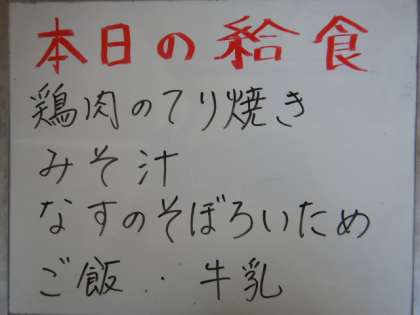 本日の給食
鶏肉のてり焼き
みそ汁
なすのそぼろいため
ご飯・・牛乳